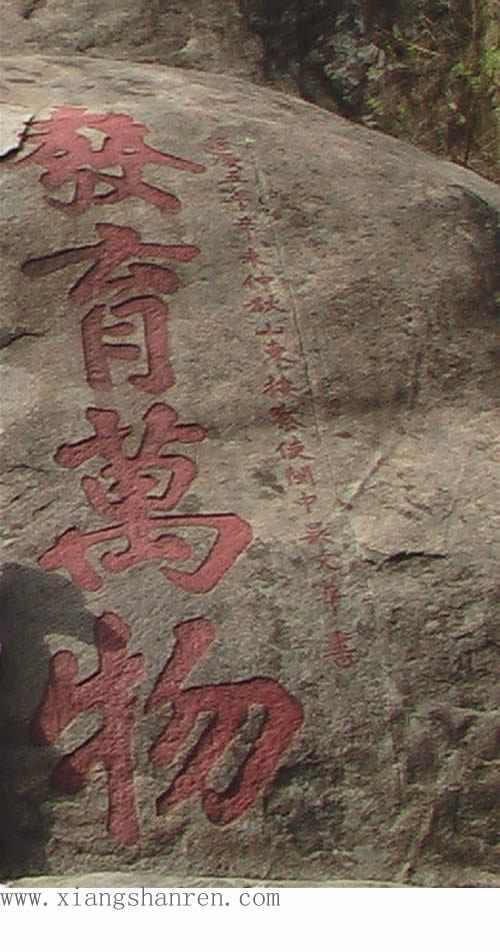 隆慶五年辛未仲秋山東按察使閩中吳文華書
發育萬物
www.xiangshanren.com